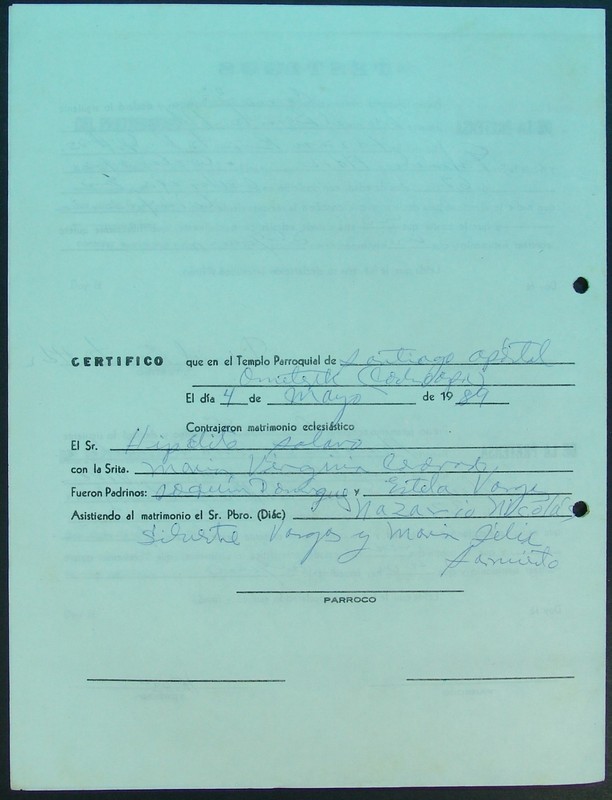 CERTIFICO que en el Templo Parroquial de Santiago apóstol
El día 4 de Mayo de 1984
Contrajeron matrimonio eclesiástico
El Sr. Hipólito solano
con la Srita. Maria Virginia
Fueron Padrinos: Joaquín Dominguez y Estela Vargas
Asistiendo al matrimonio el Sr. Pbro. (Diác) Nazario Nicolás
Silvestre Vargas y Maria Felix
Sarmiento
PARROCO